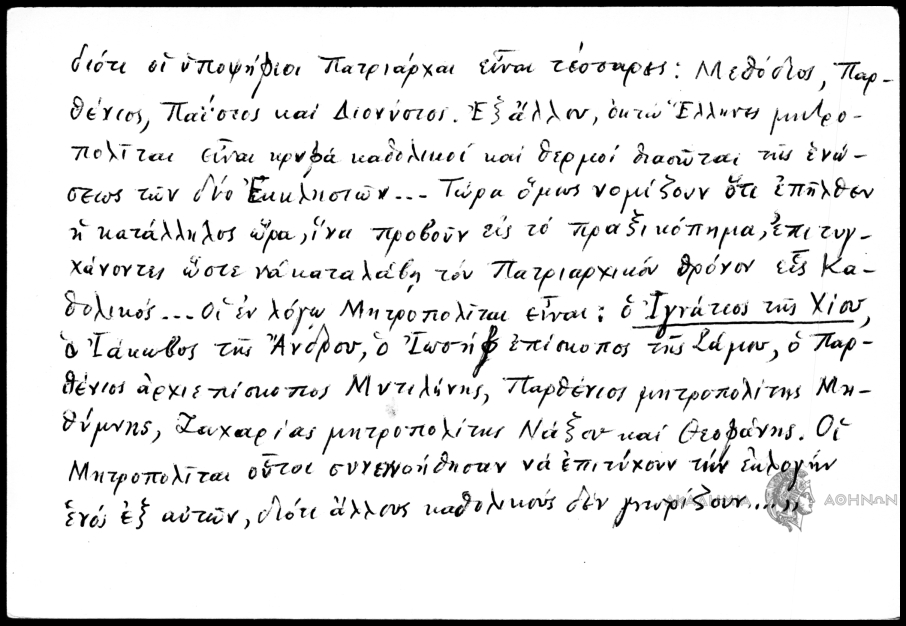 διότι οἱ ὑποψήφιοι Πατριάρχαι εἶναι τέσσαρες: Μεθόδιος, Παρ-
θένιος, Παΐσιος καί Διονύσιος. Ἐξ ἄλλου, ὀκτώ Ἕλληνες μητρο-
πολῖται εἶναι κρυφά καθολικοί καί θερμοί θιασῶται τῆς ἑνώ-
σεως τῶν δύο Ἐκκλησιῶν... Τώρα ὅμως νομίζουν ὅτι ἐπῆλθεν
ἡ κατάλληλος ὥρα, ἵνα προβοῦν εἰς τό πραξικόπημα, ἐπιτυγ-
χάνοντες ὥστε νά καταλάβῃ τόν Πατριαρχικόν θρόνον εἷς Κα-
θολικός... Οἱ ἐν λόγῳ Μητροπολῖται εἶναι: ὁ Ἰγνάτιος τῆς Χίου,
ὁ Ἰάκωβος τῆς Ἄνδρου, ὁ Ἰωσήφ ἐπίσκοπος τῆς Σάμου, ὁ Παρ-
θένιος ἀρχιεπίσκοπος Μυτιλήνης, Παρθένιος μητροπολίτης Μη-
θύμνης, Ζαχαρίας μητροπολίτης Νάξου καί Θεοφάνης. Οἱ
Μητροπολῖται οὗτοι συνενοήθησαν νά ἐπιτύχουν τήν ἐκλογήν
ἑνός ἐξ αὐτῶν, διότι ἄλλους καθολικούς δέν γνωρίζουν...,,
ΑΚΑΔΗΜΙΑ ΑΘΗΝΩΝ